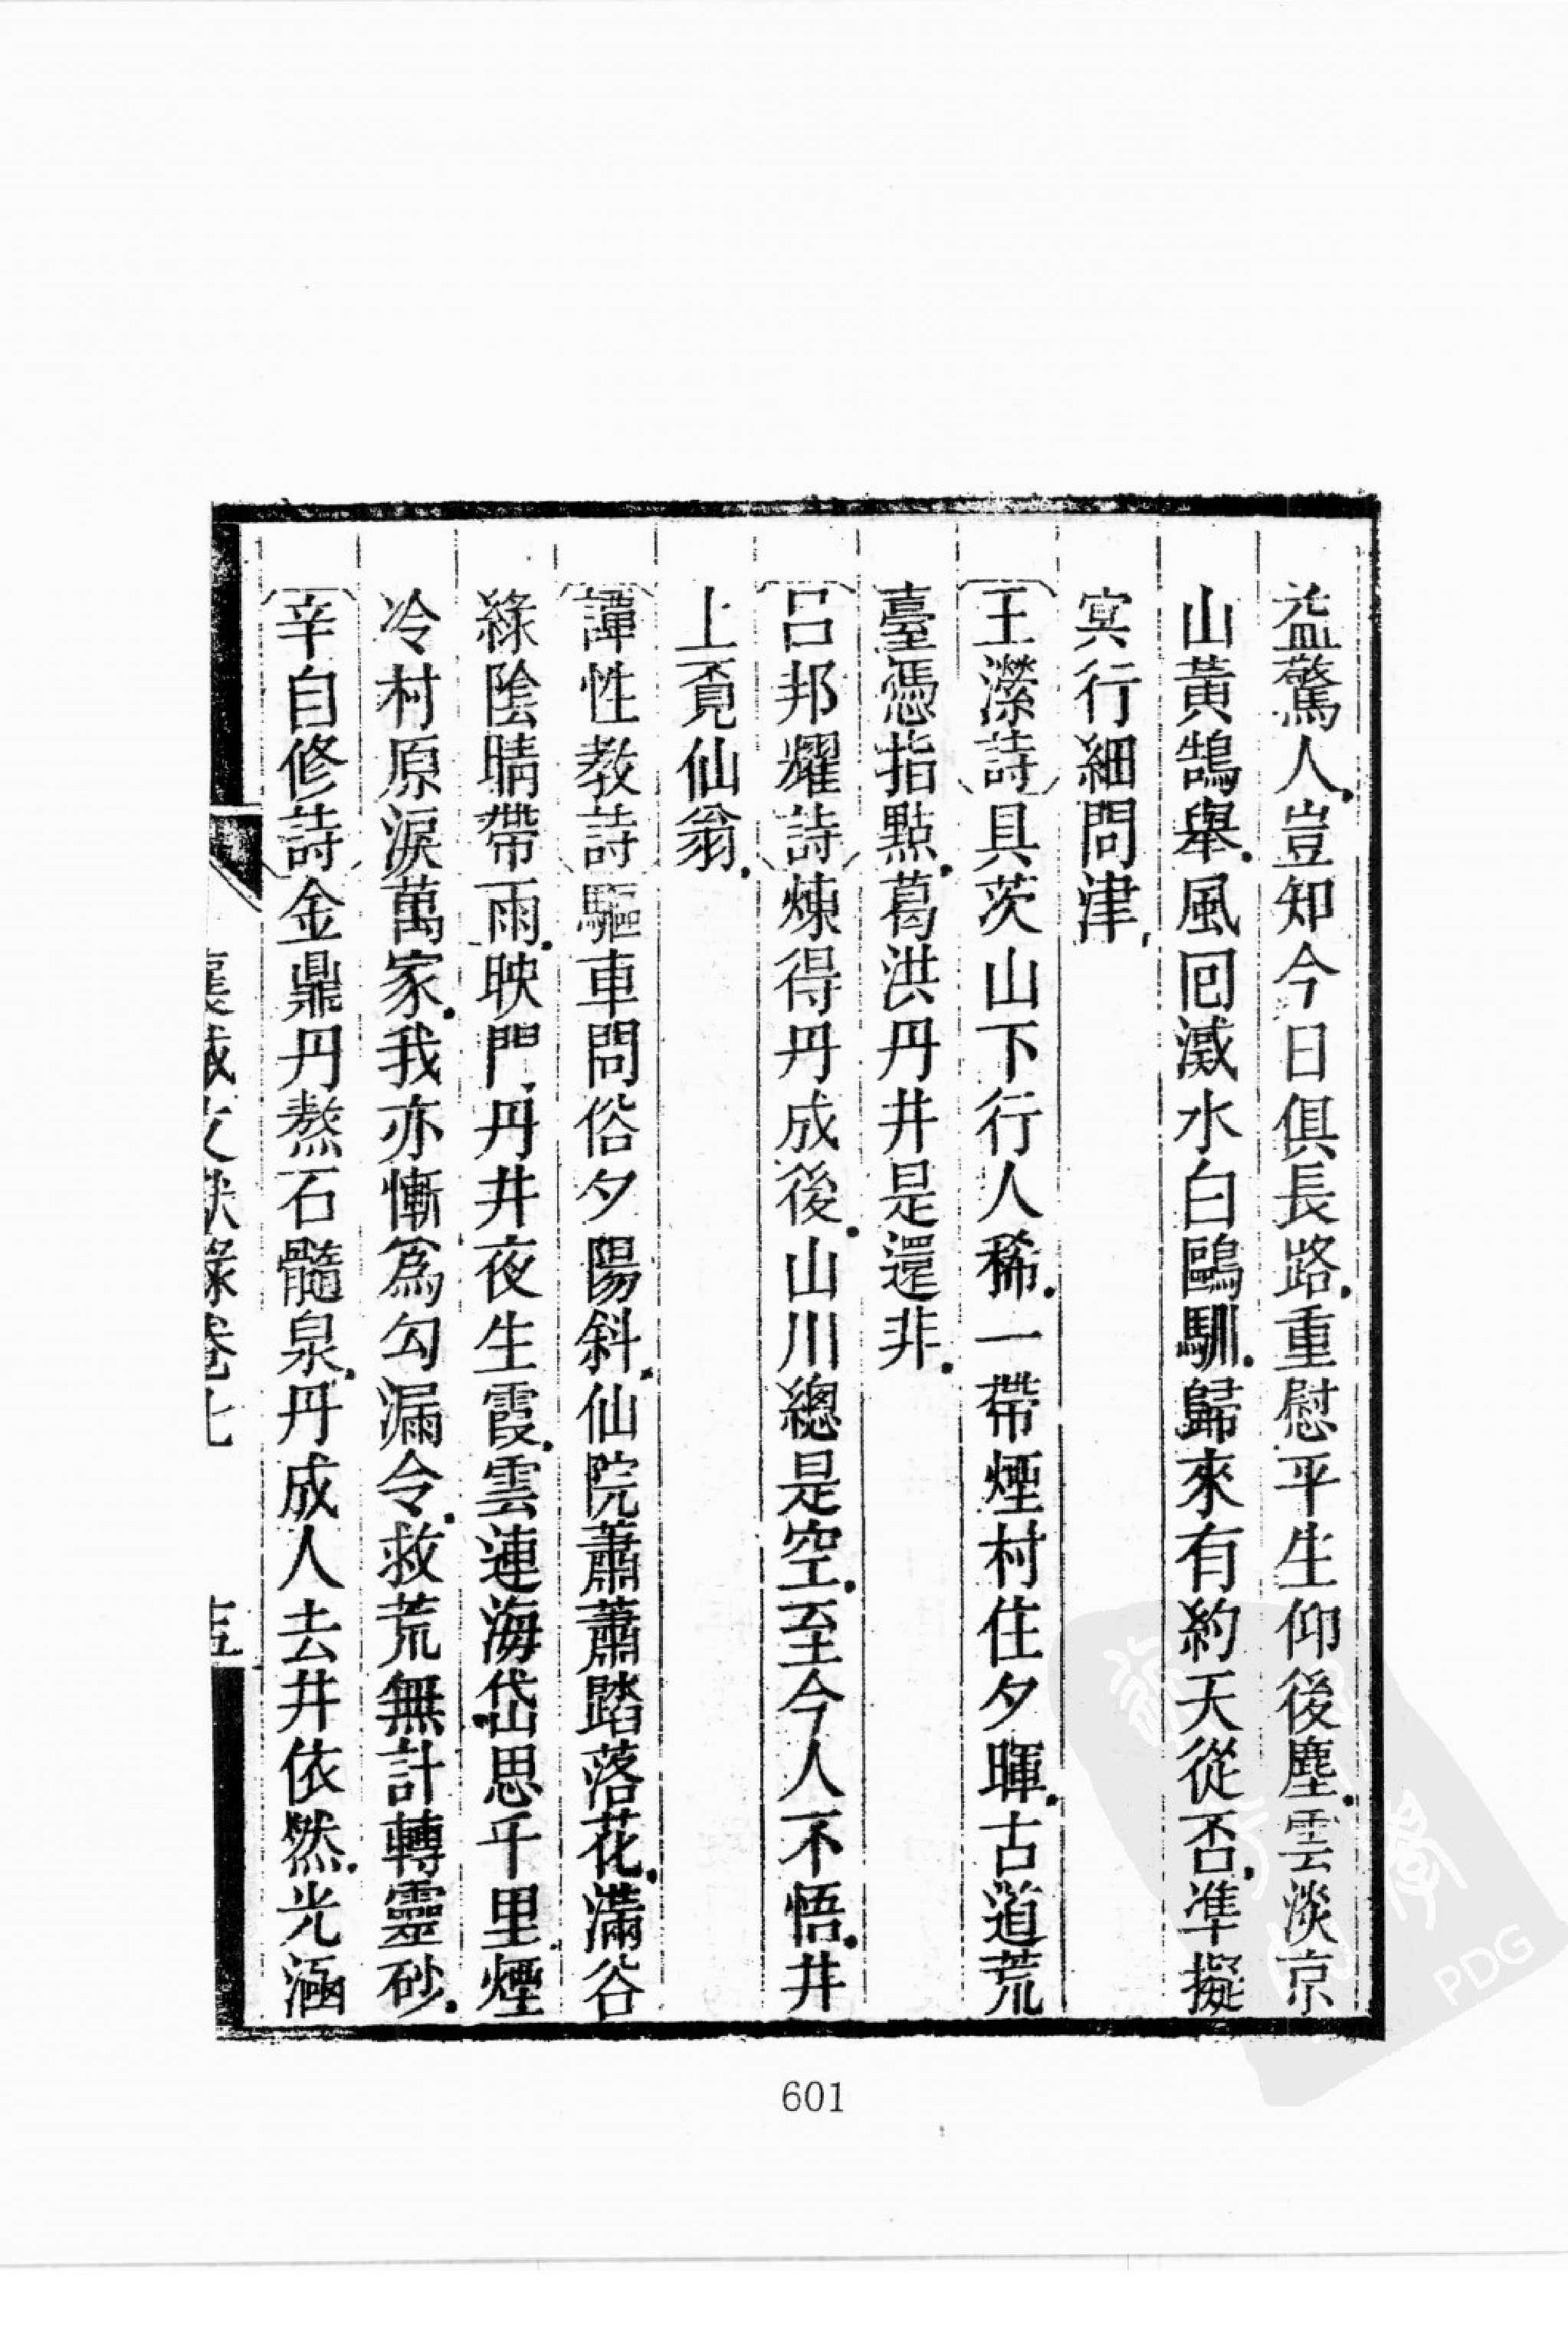 益驚人豈知今日俱長路重慰平生仰後塵雲淡京
山黃鵠舉風回溵水白鷗馴歸來有約天從否準擬
㝠行細問津
王瀠詩具茨山下行人稀一帶煙村住夕暉古道荒
臺憑指點葛洪丹井是還非
呂邦耀詩煉得丹成後山川總是空至今人不悟井
上覓仙翁
譚性教詩驅車問俗夕陽斜仙院蕭蕭踏落花滿谷
綠陰晴帶雨映門丹井夜生霞雲連海岱思千里煙
冷村原淚萬家我亦慚爲勾漏令救荒無計轉靈砂
辛自修詩金鼎丹熬石髓泉丹成人去井依然光涵
襄城文獻錄卷七
601
PDG